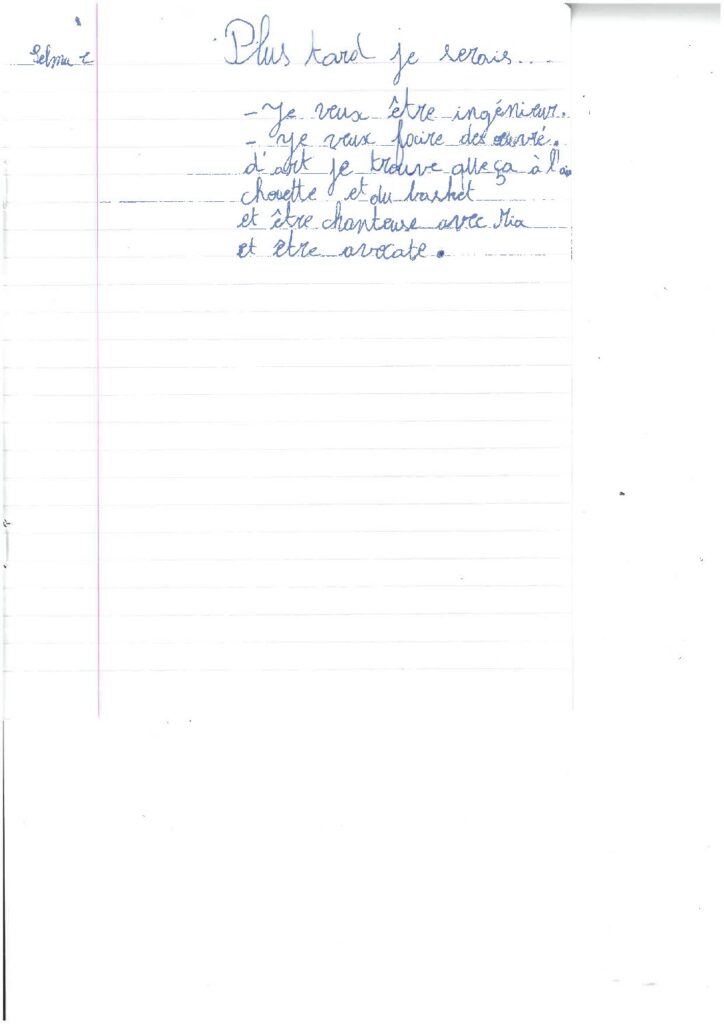 Selma c
Plus tard je serais...
- Je veux être ingénieur.
- Je veux faire des œuvré.
d'art je trouve que ça à l'ai
chouette et du basket
et être chanteuse avec Mia
et etre avocate.